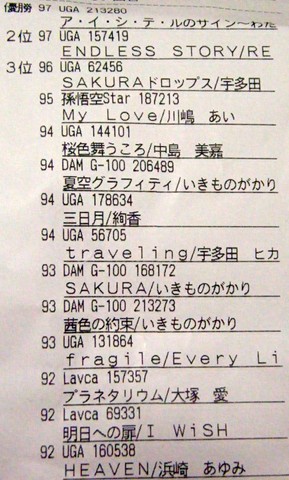 優勝 97 UGA 213280
ア・イ・シ・テ・ルのサイン～わた
2位 97 UGA 157419
ENDLESS STORY/RE
3位 96 UGA 62456
SAKURAドロップス/宇多田
95 孫悟空Star 187213
My Love/川嶋 あい
94 UGA 144101
桜色舞うころ/中島 美嘉
94 DAM G-100 206489
夏空グラフィティ/いきものがかり
94 UGA 178634
三日月/絢香
94 UGA 56705
traveling/宇多田 ヒカ
93 DAM G-100 168172
SAKURA/いきものがかり
93 DAM G-100 213273
茜色の約束/いきものがかり
93 UGA 131864
fragile/Every Li
92 Lavca 157357
プラネタリウム/大塚 愛
92 Lavca 69331
明日への扉/I WiSH
92 UGA 160538
HEAVEN/浜崎 あゆみ